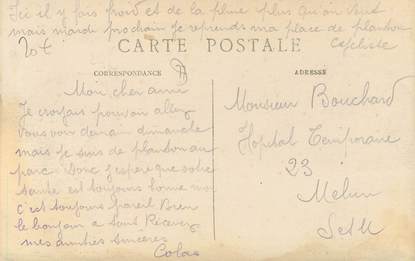 Ici il y fais froid et de la pluie plus qu'on veut
mais mardi prochain je reprends ma place de planton
cycliste
CARTE POSTALE
CORRESPONDANCE
ADRESSE
Mon cher ami
Je croyais pouvoir aller
vous voir demain dimanche
mais je suis de planton au
parc. Donc j'espère que votre
santé est toujours bonne moi
c'est toujours pareil Bien
le bonjour a tous Recevez
mes amitiés sincères
Colas
Monsieur Bouchard
Hopital Temporaire
23
Melun
S et M